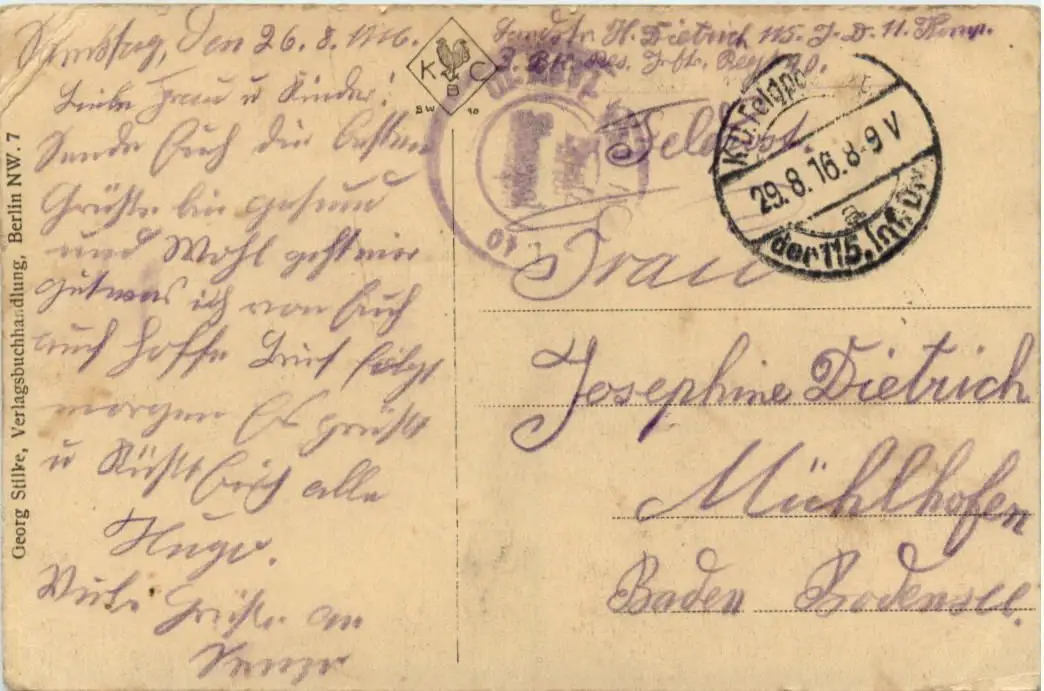 Samstag, den 26.8.1916.
Liebe Frau u Kinder!
Sende Euch die besten
Grüße bin gesund
und Wohl geht mir
gut was ich von Euch
auch hoffe Brief folgt
morgen Es grüßt
u Küßt Euch alle
Hugo.
Viele Grüße an
K C B
SW 10
Georg Stilke, Verlagsbuchhandlung, Berlin NW. 7
Landstr. H. Dietrich 115. I. D. 11. Komp.
3. Btl. Res. Inftr. Regt.
Feldpost.
K.D. Feldpo
29.8.16.8-9V
a
der 115. Inf. Div
Frau
Josephine Dietrich
Mühlhofen
Baden Bodensee.